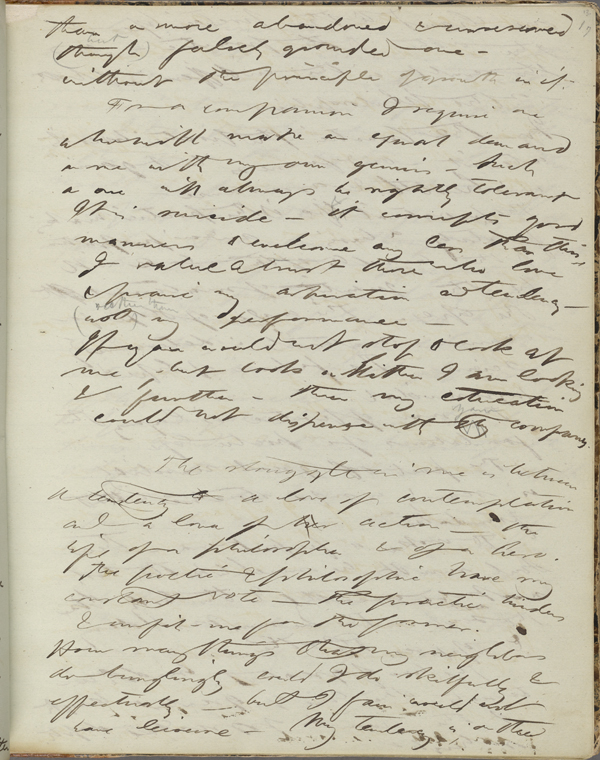 than a more abandoned & unreserved
but
(though) falsely grounded one—
without the principle of growth in it.
For a companion I require one
who will make an equal demand
on me with my own genius— Such
a one will always be rightly tolerant
It is suicide— & corrupts good
manners to welcome any less than this
I value & trust those who love
& praise my aspiration &tendency—
(not my performance—
If you would not stop to look at
me—but look whither I am looking
& further— then my education
could not dispense with your company.
The struggle in me is between
a love of contemplation
and a love of action— the
life of a philosopher & of a hero.
The poetic & philosophic have my
constant vote— the practic hinders
& unfits me for the former.
How many things that my neighbors
do bunglingly could I do skilfully &
effectually— but I fain would not
have leisure— My tendency is on the